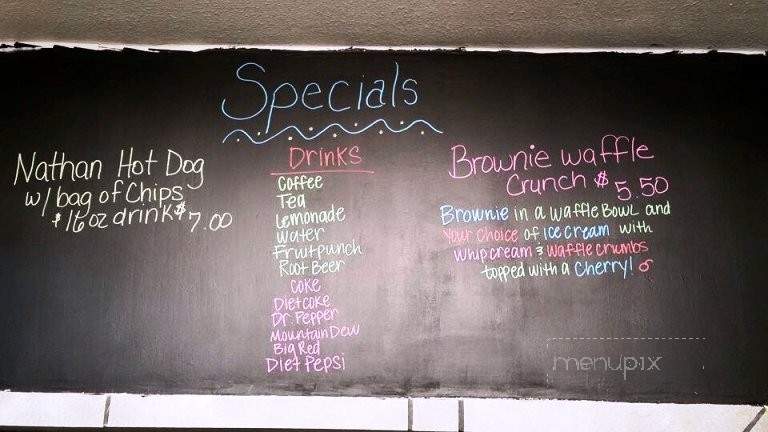 Specials
Nathan Hot Dog
w/ bag of Chips
& 16 oz drink $7.00
Drinks
Coffee
Tea
Lemonade
Water
Fruit punch
Root Beer
Coke
Diet coke
Dr. Pepper
Mountain Dew
Big Red
Diet Pepsi
Brownie waffle
Crunch $5.50
Brownie in a waffle Bowl and
Your Choice of ice cream with
whip cream & waffle crumbs
topped with a Cherry!
menupix